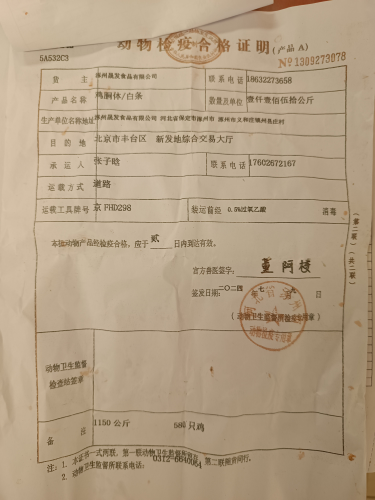 动物检疫合格证明（产品 A）
5A532C3
№ 1309273078
货 主 涿州晟发食品有限公司 联系电话 18632273658
产品名称 鸡胴体/白条 数量及单位 壹仟壹佰伍拾公斤
生产单位名称地址 涿州晟发食品有限公司 河北省保定市涿州市
目 的 地 北京市丰台区 新发地综合交易大厅
承 运 人 张子晗 联系电话 17602672167
运载方式 道路
运载工具牌号 京 FHD298 装运前经 0.5%过氧乙酸 消毒
本批动物产品经检疫合格，应于 贰 日内到达有效。
官方兽医签字：
签发日期：二〇二四 年 七 月 九 日
（动物卫生监督所检疫专用章）
动物检疫专用章
动物卫生监督
检查站签章
备 注
1150 公斤 586 只鸡
注：1. 本证书一式两联，第一联动物卫生监督所留存，第二联随货同行。
2. 动物卫生监督所联系电话：0312-6640064
（第二联）（共二联）